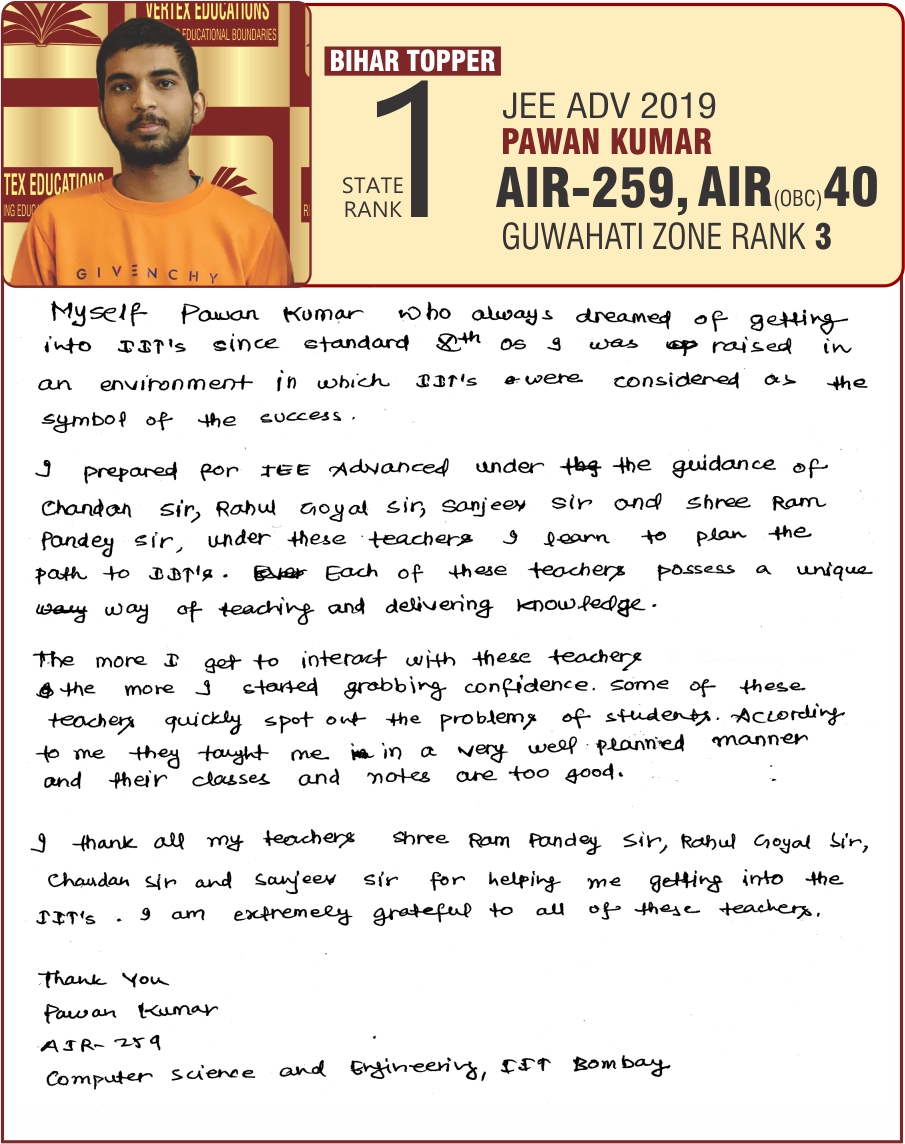 VERTEX EDUCATIONS
EDUCATIONAL BOUNDARIES
TEX EDUCATIONS
ING EDUCA
GIVENCHY
BIHAR TOPPER
1
STATE
RANK
JEE ADV 2019
PAWAN KUMAR
AIR-259, AIR(OBC)40
GUWAHATI ZONE RANK 3
Myself Pawan Kumar who always dreamed of getting
into IIT's since standard 8th as I was raised in
an environment in which IIT's were considered as the
symbol of the success.
I prepared for JEE Advanced under the guidance of
Chandan Sir, Rahul Goyal Sir, Sanjeev Sir and Shree Ram
Pandey Sir, under these teachers I learn to plan the
path to IIT's. Each of these teachers possess a unique
way of teaching and delivering knowledge.
The more I get to interact with these teachers
the more I started grabbing confidence. Some of these
teachers quickly spot out the problems of students. According
to me they taught me in a very well planned manner
and their classes and notes are too good.
I thank all my teachers Shree Ram Pandey Sir, Rahul Goyal Sir,
Chandan Sir and Sanjeev Sir for helping me getting into the
IIT's. I am extremely grateful to all of these teachers.
Thank You
Pawan Kumar
AIR-259
Computer Science and Engineering, IIT Bombay